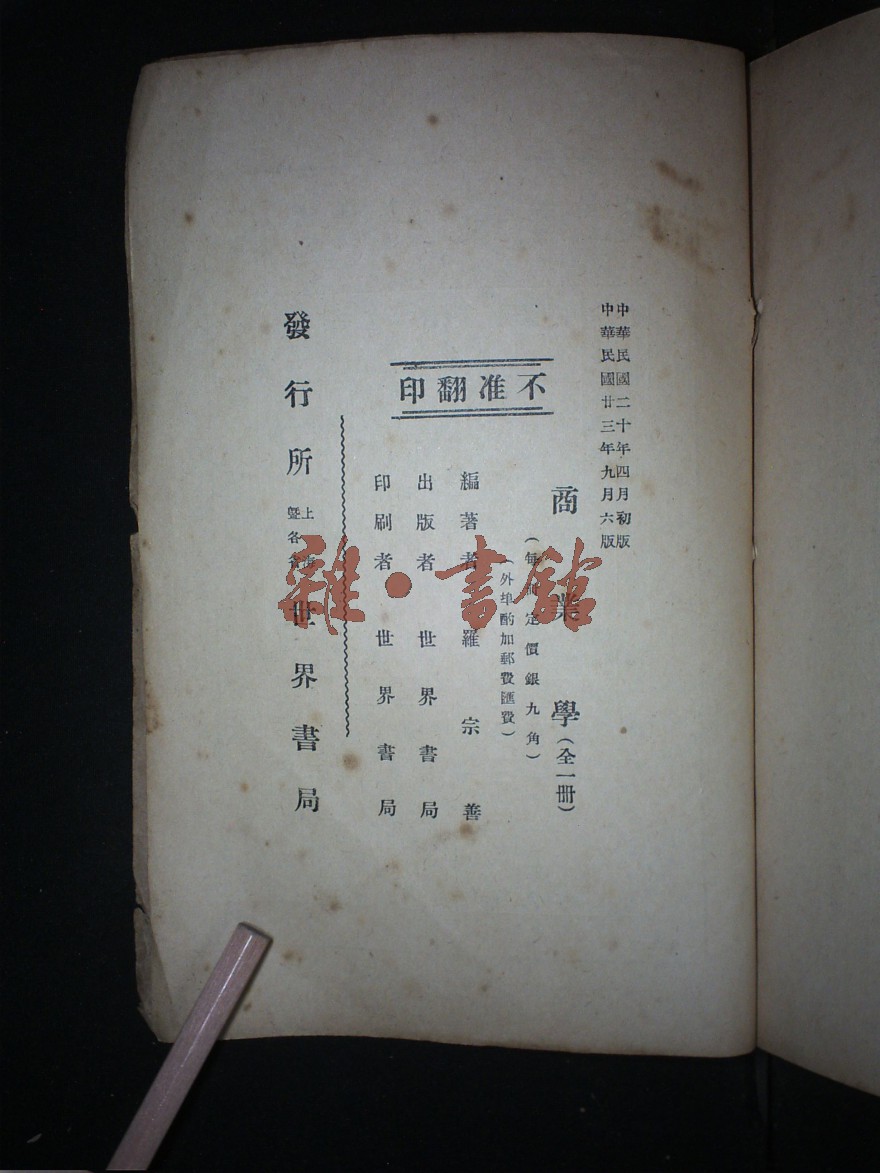 中華民國二十年四月初版
中華民國廿三年九月六版
商業學(全一冊)
(每冊定價銀九角)
(外埠酌加郵費匯費)
不准翻印
編著者 羅宗善
出版者 世界書局
印刷者 世界書局
發行所 上海暨各省 世界書局
雜·書館